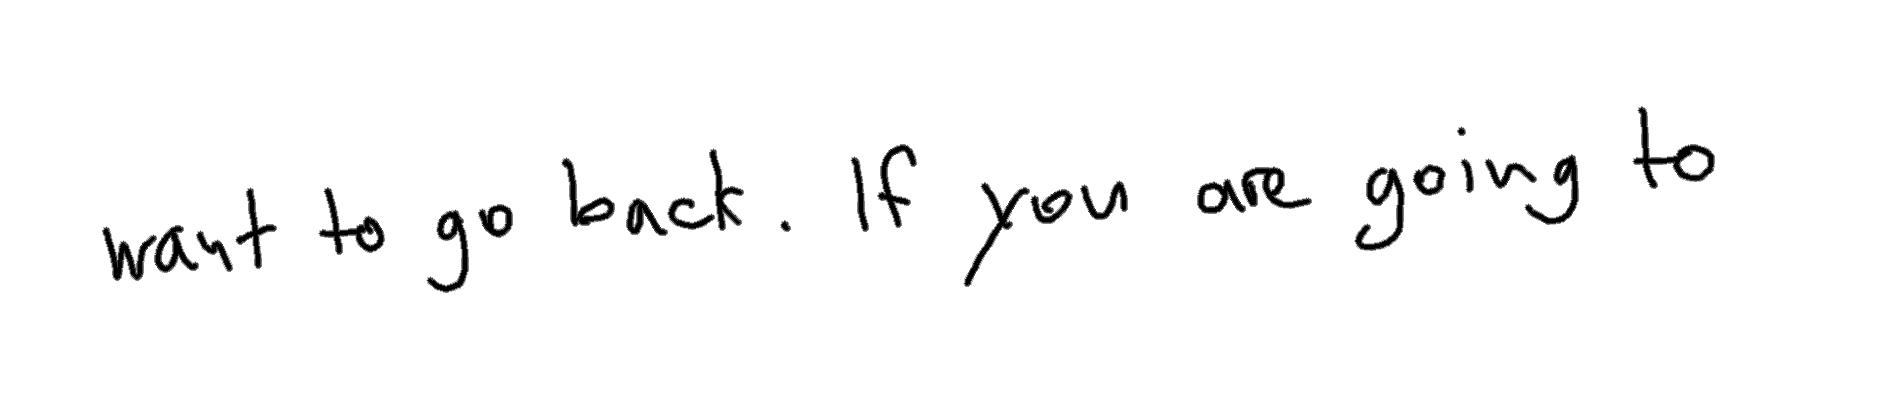 want to go back. If you are going to